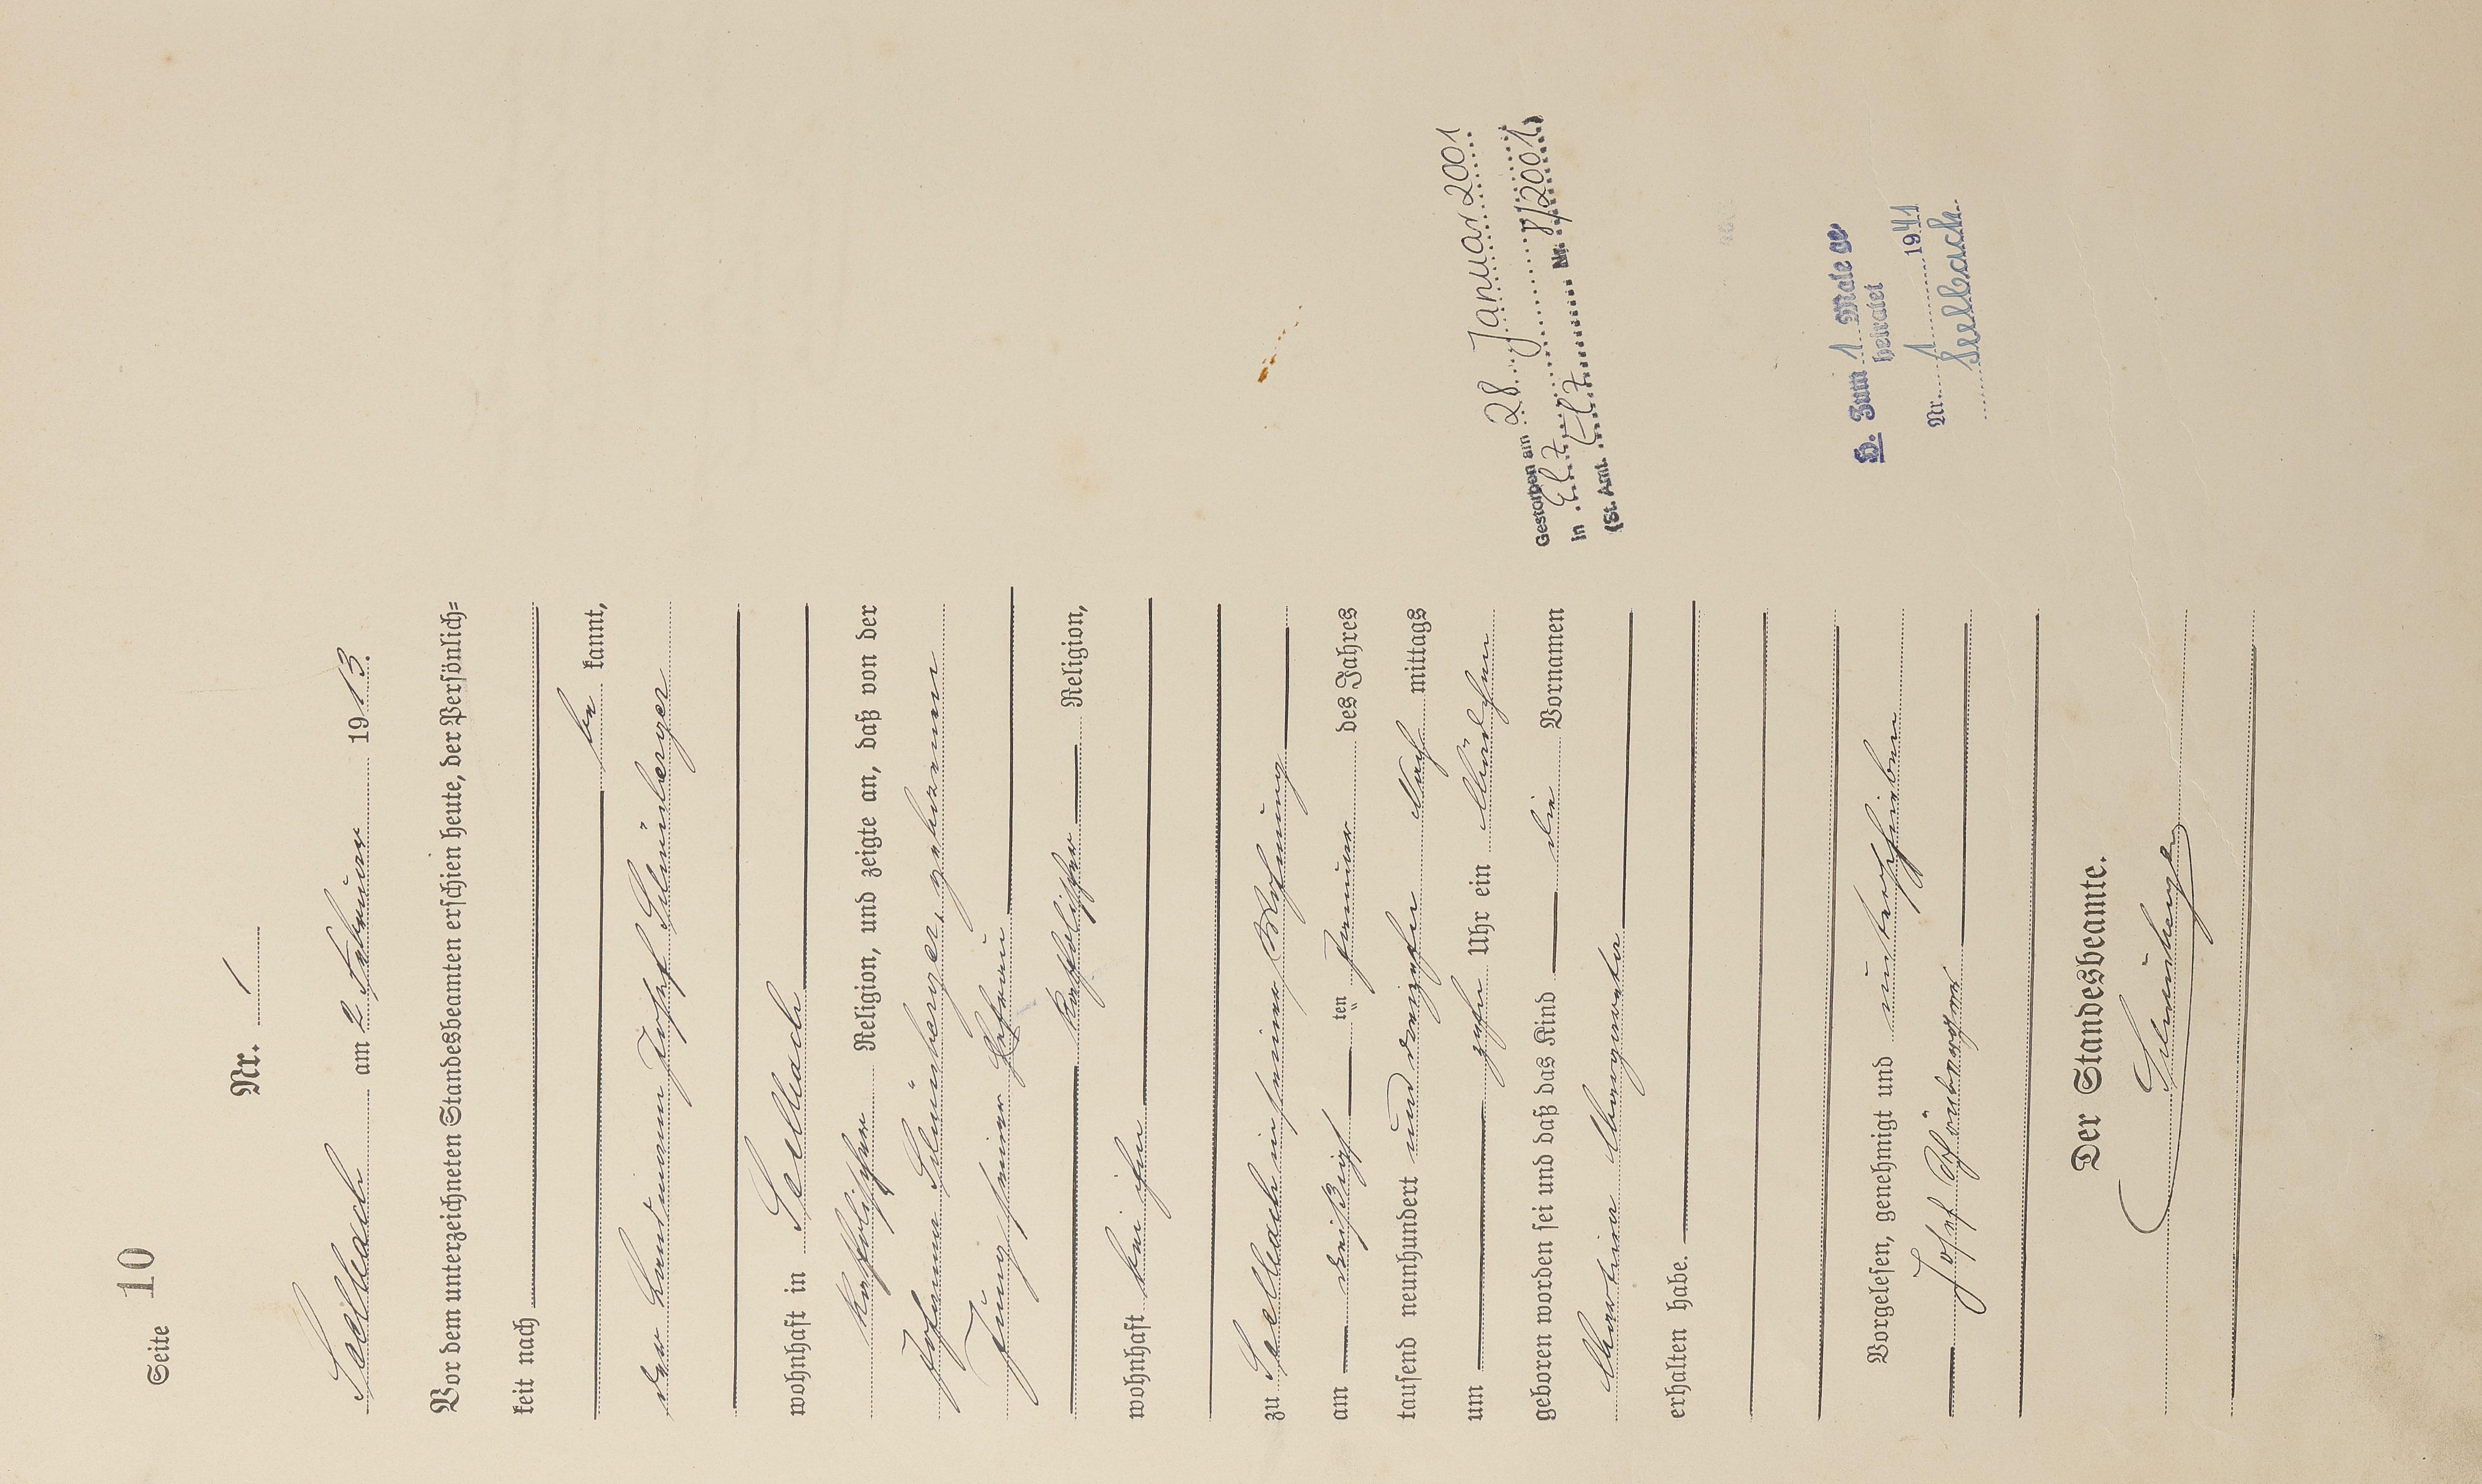 Seite 10
Nr. 1
Seelbach am 2 Februar 1913.
Vor dem unterzeichneten Standesbeamten erschien heute, der Persönlich=
keit nach
be kannt,
der Landmann Josef Schönberger
wohnhaft in Seelbach
katholischer Religion, und zeigte an, daß von der
Johanna Schönberger, geborenen
Jung seiner Ehefrau
katholischer Religion,
wohnhaft bei ihm
zu Seelbach in seiner Wohnung
am dreißigs ten Januar des Jahres
tausend neunhundert und dreizehn Nach mittags
um zehn Uhr ein Mädchen
geboren worden sei und daß das Kind die Vornamen
Martina Margareta
erhalten habe.
Vorgelesen, genehmigt und unterschrieben
Josef Schönberger
Der Standesbeamte.
Schönberger
Gestorben am 28. Januar 2001
in Elz
(St. Amt. Elz Nr. 8/2001)
H. Zum 1 Male ge
heiratet
Nr. 1 1941
Seelbach